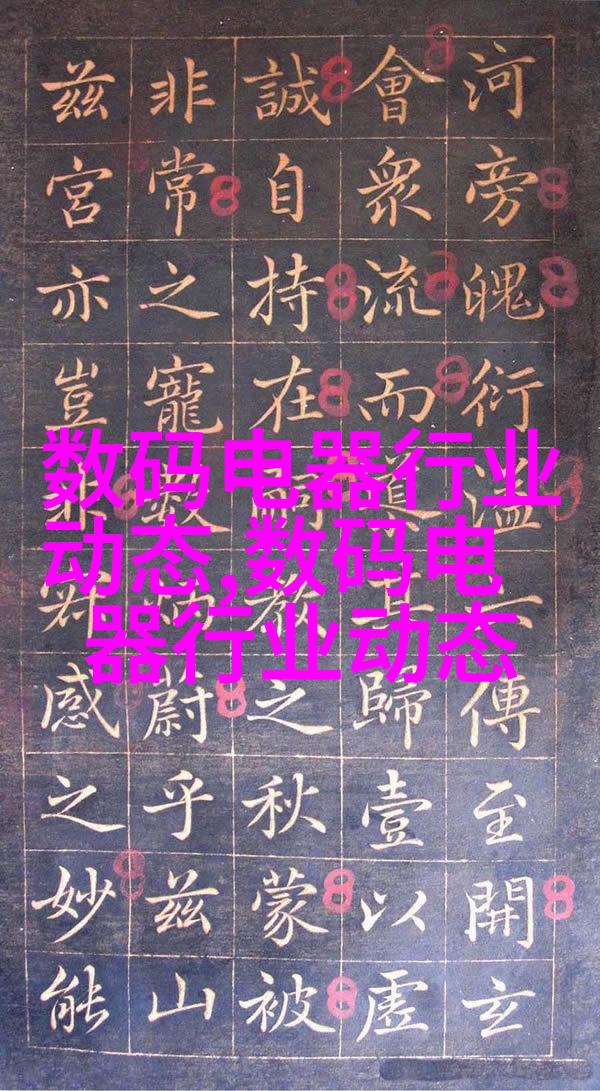 河旁魄衍溢傳至開玄
會衆流而道歸壹以虛
誠自持在嗣教之秋蒙被
非常之寵數蔚乎茲山
茲宮亦豈感之妙能
数码电器行业
动态,数码电
器行业动态